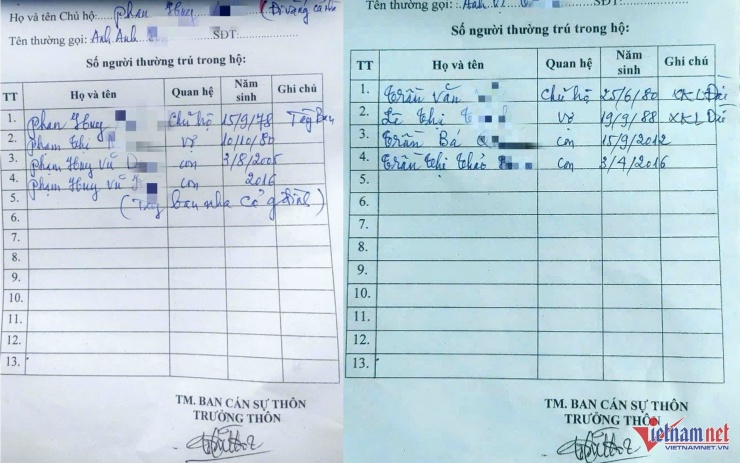 Họ và tên Chủ hộ: Phan Huy (Đi vắng cả nhà
Tên thường gọi: Anh Anh SĐT:
Số người thường trú trong hộ:
TT Họ và tên Quan hệ Năm sinh Ghi chú
1. Phan Huy Chủ hộ 15/9/78 Tây Ban
2. Phạm Thị Vợ 10/10/80
3. Phạm Huy Vũ con 3/8/2005
4. Phạm Huy Vũ con 2016
5. (Tây ban nha cả g đình)
6.
7.
8.
9.
10.
11.
12.
13.
TM. BAN CÁN SỰ THÔN
TRƯỞNG THÔN
Tên thường gọi: Anh SĐT:
Số người thường trú trong hộ:
TT Họ và tên Quan hệ Năm sinh Ghi chú
1. Trần Văn Chủ hộ 25/6/80 XKLĐ
2. Lê Thị Vợ 19/9/88 XKLĐ
3. Trần Bá con 15/9/2012
4. Trần Thị Thảo con 3/4/2016
5.
6.
7.
8.
9.
10.
11.
12.
13.
TM. BAN CÁN SỰ THÔN
TRƯỞNG THÔN
Vietnamnet
VIETNAMNET.VN